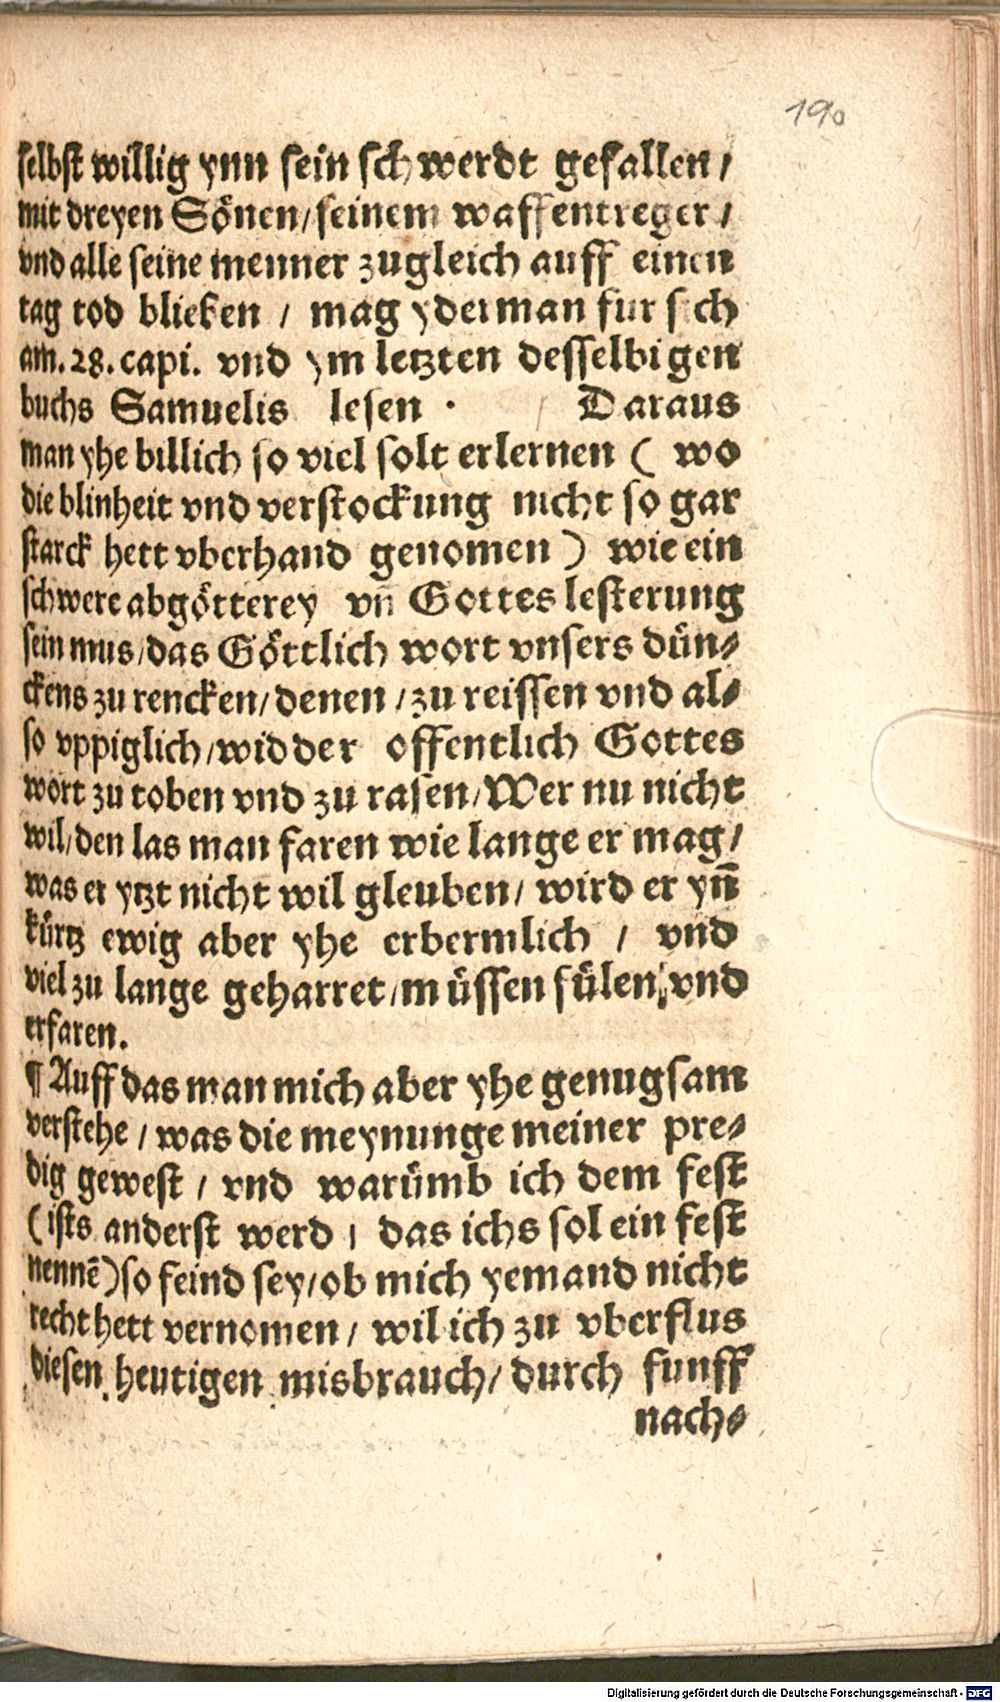 190
selbst willig ynn sein schwerdt gefallen /
mit dreyen Sönen / seinem waffentreger /
vnd alle seine menner zugleich auff einen
tag tod blieben / mag yderman fur sich
am. 28. capi. vnd ym letzten desselbigen
buchs Samuelis lesen . Daraus
man yhe billich so viel solt erlernen ( wo
die blinheit vnd verstockung nicht so gar
starck hett vberhand genomen ) wie ein
schwere abgötterey vñ Gottes lesterung
sein mus / das Göttlich wort vnsers dün⸗
ckens zu rencken / denen / zu reissen vnd al⸗
so vppiglich / widder offentlich Gottes
wort zu toben vnd zu rasen / Wer nu nicht
wil / den las man faren wie lange er mag /
was er ytzt nicht wil gleuben / wird er yñ
kürtz ewig aber yhe erbermlich / vnd
viel zu lange geharret / müssen fülen / vnd
erfaren.
¶ Auff das man mich aber yhe genugsam
verstehe / was die meynunge meiner pre⸗
dig gewest / vnd warümb ich dem fest
( ists anderst werd / das ichs sol ein fest
nennē ) so feind sey / ob mich yemand nicht
recht hett vernomen / wil ich zu vberflus
diesen heutigen misbrauch / durch funff
nach⸗
Digitalisierung gefördert durch die Deutsche Forschungsgemeinschaft - DFG